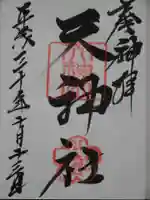 奉神拝
天神社
平成二十五年十月十二日